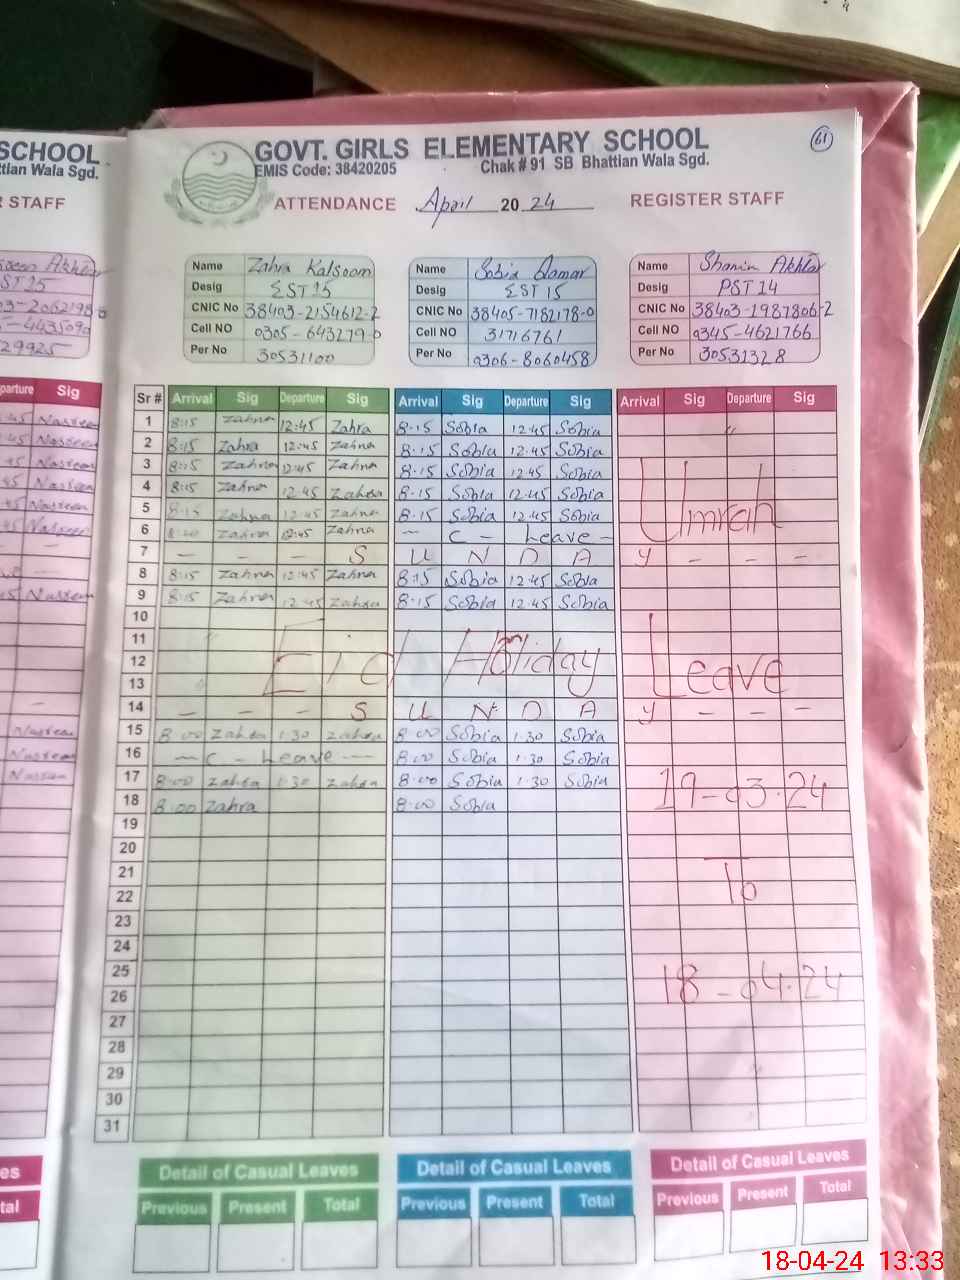 SCHOOL
ttian Wala Sgd.
R STAFF
GOVT. GIRLS ELEMENTARY SCHOOL
61
EMIS Code: 38420205 Chak # 91 SB Bhattian Wala Sgd.
ATTENDANCE April 20 24 REGISTER STAFF
Name Zahra Kalsoom Name Sobia Qamar Name Shamim Akhtar
Desig EST 15 Desig EST 15 Desig PST 14
CNIC No 38403-2154612-2 CNIC No 38405-7182178-0 CNIC No 38403-1987806-2
Cell NO 0305-6432790 Cell NO 31716761 Cell NO 0345-4621766
Per No 30531100 Per No 0306-8060458 Per No 30531328
parture Sig
Sr # Arrival Sig Departure Sig Arrival Sig Departure Sig Arrival Sig Departure Sig
1 8:15 Zahra 12:45 Zahra 8-15 Sobia 12:45 Sobia
2 8:15 Zahra 12:45 Zahra 8-15 Sobia 12:45 Sobia
3 8:15 Zahra 12:45 Zahra 8-15 Sobia 12:45 Sobia
4 8:15 Zahra 12:45 Zahra 8-15 Sobia 12:45 Sobia
5 8:15 Zahra 12:45 Zahra 8-15 Sobia 12:45 Sobia
Umrah
6 Zahra 12:45 Zahra - C - Leave -
7 - - - S U N D A Y - - -
8 8:15 Zahra 12:45 Zahra 8:15 Sobia 12:45 Sobia
9 8:15 Zahra 12:45 Zahra 8-15 Sobia 12:45 Sobia
10
11
12 Eid Holiday Leave
13
14 - - - S U N D A Y - - -
15 8:00 Zahra 1:30 Zahra 8:00 Sobia 1:30 Sobia
16 - C - Leave - 8:00 Sobia 1:30 Sobia
17 8:00 Zahra 1:30 Zahra 8:00 Sobia 1:30 Sobia
19-03-24
18 8:00 Zahra 8:00 Sobia
19
20
21
To
22
23
24
25
18-04-24
26
27
28
29
30
31
Detail of Casual Leaves Detail of Casual Leaves Detail of Casual Leaves
Previous Present Total Previous Present Total Previous Present Total
18-04-24 13:33